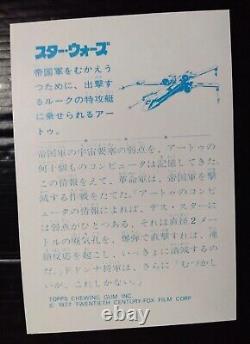 スター・ウォーズ
帝国軍をむかえう
つために、出撃す
るルークの特攻艇
に乗せられるアー
トゥ。
帝国軍の宇宙要塞の弱点を、アートゥの
何十個ものコンピュータは記憶してきた。
この情報をえて、革命軍は、帝国軍を撃
滅する作戦をたてた。「アートゥのコンピ
ュータの情報によれば、デス・スターに
弱点がひとつある。それは直径2メ
ートルの廃気孔を、爆弾で直撃すれば、連
鎖反応を起こし、いっきょに消滅するの
だ。」ドドンナ将軍は、さらに「むづかし
いが、これしかない。」
TOPPS CHEWING GUM INC.
© 1977 TWENTIETH CENTURY-FOX FILM CORP